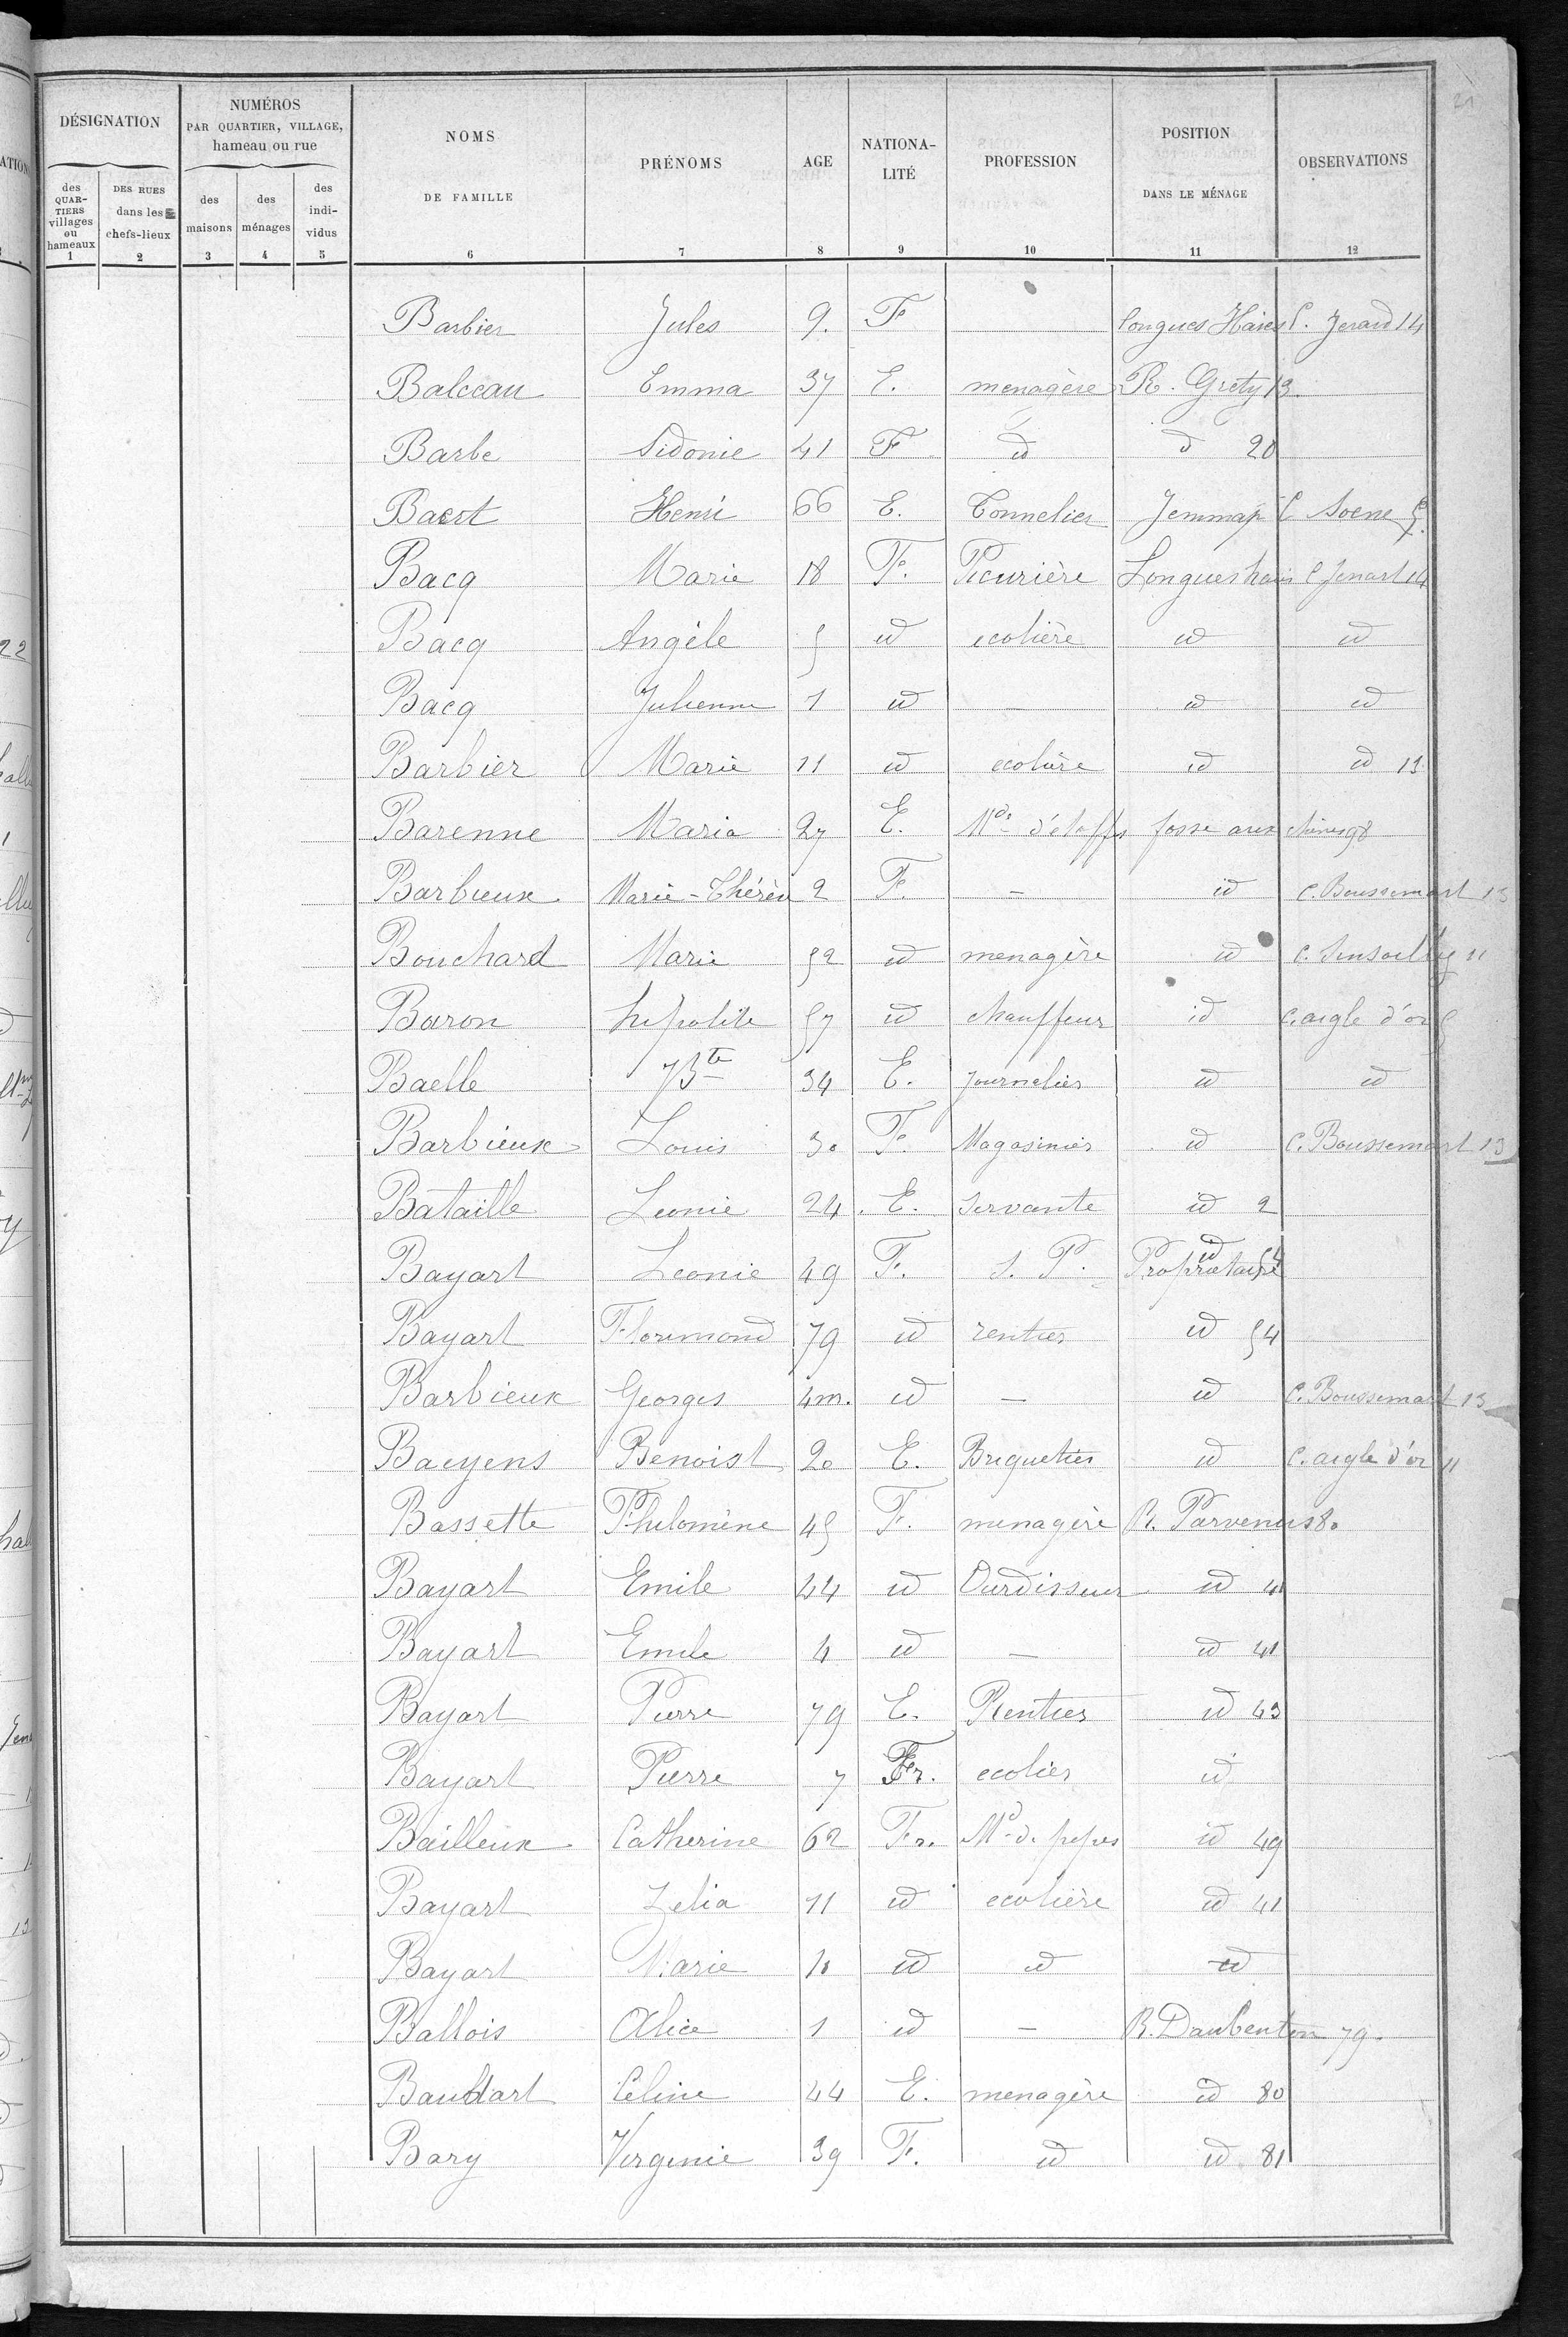 21
DÉSIGNATION
NUMÉROS PAR QUARTIER, VILLAGE, hameau ou rue
NOMS DE FAMILLE
PRÉNOMS
AGE
NATIONA-LITÉ
PROFESSION
POSITION DANS LE MÉNAGE
OBSERVATIONS
des QUAR-TIERS villages ou hameaux
DES RUES dans les chefs-lieux
des maisons
des ménages
des indi-vidus
1 2 3 4 5 6 7 8 9 10 11 12
Barbier Jules 9. F Longues Haies C. Jerard 14
Balceau Emma 37 E. menagère R. Grety 13.
Barbe Sidonie 41 F id d 20
Baert Henri 66 E. Tonnelier Jemmap C Soene 5
Bacq Marie 18 F. Picurière Longueshaies C Jenart 14
Bacq Angèle 5 id ecolière id id
Bacq Julienne 1 id — id id
Barbier Marie 11 id ecolière id id 13
Barenne Maria 27 E. Mde d'étoffes fosse aux chênes 98
Barbieux Marie-Thérèse 2 F. — id C. Boussemart 13
Bouchard Marie 52 id menagère id C. 11
Baron hypolite 57 id chauffeur id C. aigle d'or 5
Baelle JBte 34 E. Journalier id id
Barbieux Louis 30 F. Magasinier id C. Boussemart 13
Bataille Leonie 24 E. Servante id 2
Bayart Leonie 49 F. S. P. Propriétaire id 54
Bayart Florimond 79 id rentier id 54
Barbieux Georges 4m. id — id C. Boussemart 13
Baeyens Benoist 20 E. Briquetier id C. aigle d'or 11
Bassette Philomène 45 F. menagère R. Parvenus 80
Bayart Emile 44 id Ourdisseur id 41
Bayart Emile 4 id — id 41
Bayart Pierre 79 E. Rentier id 43
Bayart Pierre 7 Fr. ecolier id
Bailleux Catherine 62 Fr. Md. de pipes id 49
Bayart Zelia 11 id ecolière id 41
Bayart Marie 10 id id id
Ballois Alice 1 id — R. Daubenton 79.
Baudart Celine 44 E. menagère id 80
Bary Virginie 39 F. id id 81